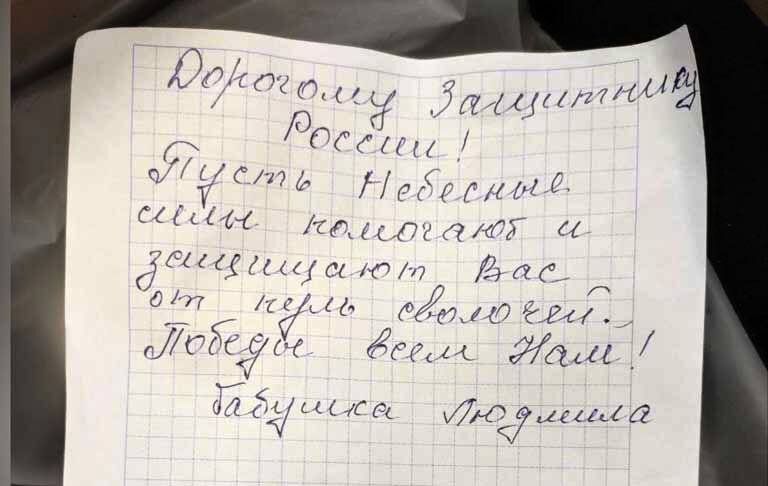 Дорогому Защитнику
России!
Пусть Небесные
силы помогают и
защищают Вас
от пуль сволочей.
Победы всем Нам!
бабушка Людмила